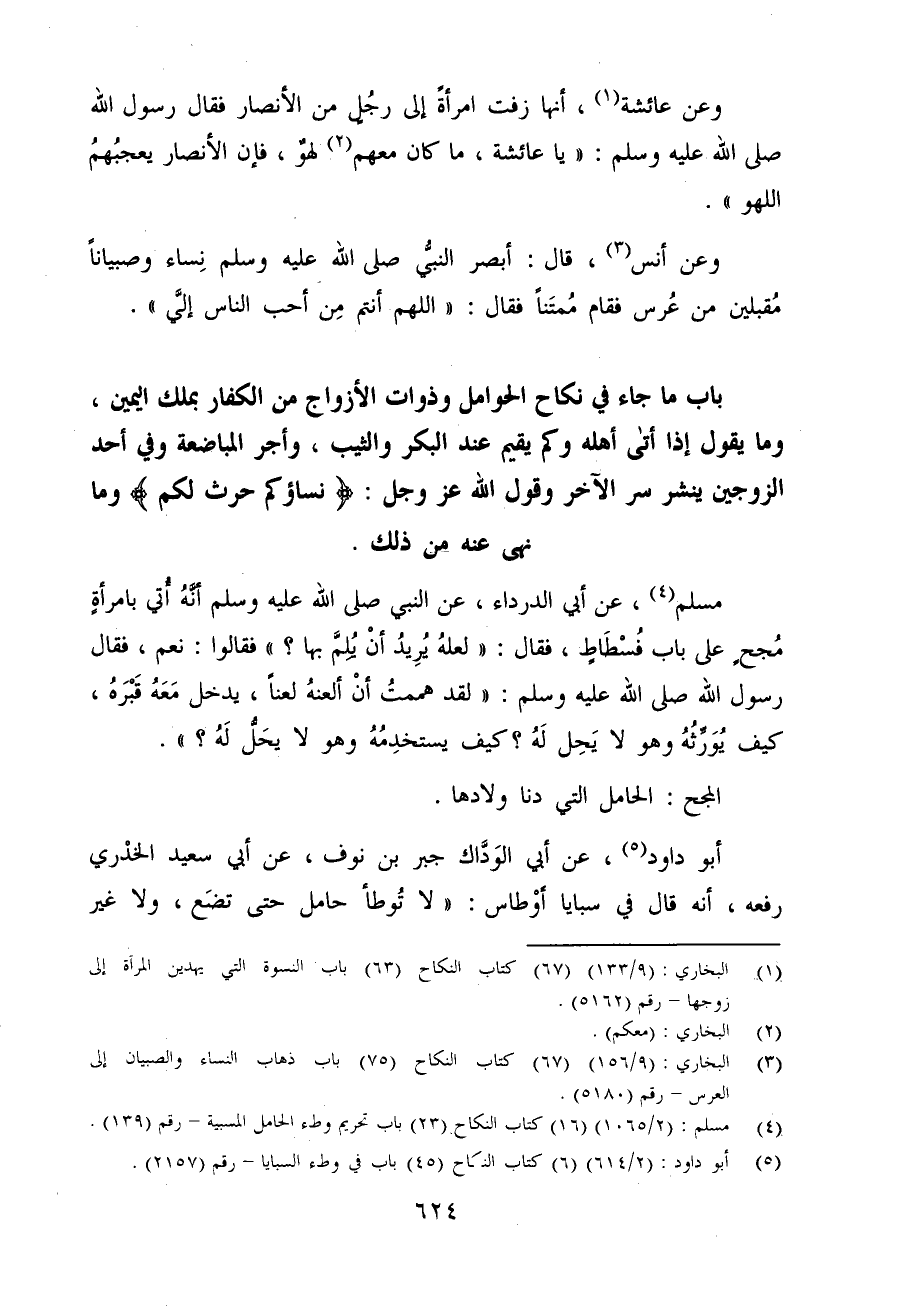 وعن عائشة(١) ، أنها زفت امرأةً إلى رجُلٍ من الأنصار فقال رسول الله
صلى الله عليه وسلم : « يا عائشة ، ما كان معهم(٢) لهوٌ ، فإن الأنصار يعجبُهمُ
اللهو » .
وعن أنس(٣) ، قال : أبصر النبيُّ صلى الله عليه وسلم نِساء وصبياناً
مُقبلين من عُرس فقام مُمتَناً فقال : « اللهم أنتم مِن أحب الناس إليَّ » .
باب ما جاء في نكاح الحوامل وذوات الأزواج من الكفار بملك اليمين ،
وما يقول إذا أتى أهله وكم يقيم عند البكر والثيب ، وأجر المباضعة وفي أحد
الزوجين ينشر سر الآخر وقول الله عز وجل : ﴿ نساؤكم حرث لكم ﴾ وما
نهى عنه من ذلك .
مسلم(٤) ، عن أبي الدرداء ، عن النبي صلى الله عليه وسلم أنَّهُ أُتي بامرأةٍ
مُجحٍ على باب فُسْطَاطٍ ، فقال : « لعلهُ يُرِيدُ أنْ يُلِمَّ بها ؟ » فقالوا : نعم ، فقال
رسول الله صلى الله عليه وسلم : « لقد هممتُ أنْ ألعنهُ لعناً ، يدخل مَعَهُ قَبْرَهُ ،
كيف يُوَرِّثُهُ وهو لا يَحِل لَهُ ؟ كيف يستخدِمُهُ وهو لا يحَلُّ لَهُ ؟ » .
المجح : الحامل التي دنا ولادها .
أبو داود(٥) ، عن أبي الوَدَّاك جبر بن نوف ، عن أبي سعيد الخذري
رفعه ، أنه قال في سبايا أوْطاس : « لا تُوطأ حامل حتى تضَع ، ولا غير
(١) البخاري : (١٣٣/٩) (٦٧) كتاب النكاح (٦٣) باب النسوة التي يهدين المرأة إلى
زوجها – رقم (٥١٦٢) .
(٢) البخاري : (معكم) .
(٣) البخاري : (١٥٦/٩) (٦٧) كتاب النكاح (٧٥) باب ذهاب النساء والصبيان إلى
العرس – رقم (٥١٨٠) .
(٤) مسلم : (١٠٦٥/٢) (١٦) كتاب النكاح (٢٣) باب تحريم وطء الحامل المسبية – رقم (١٣٩) .
(٥) أبو داود : (٦١٤/٢) (٦) كتاب النكاح (٤٥) باب في وطء السبايا – رقم (٢١٥٧) .
٦٢٤